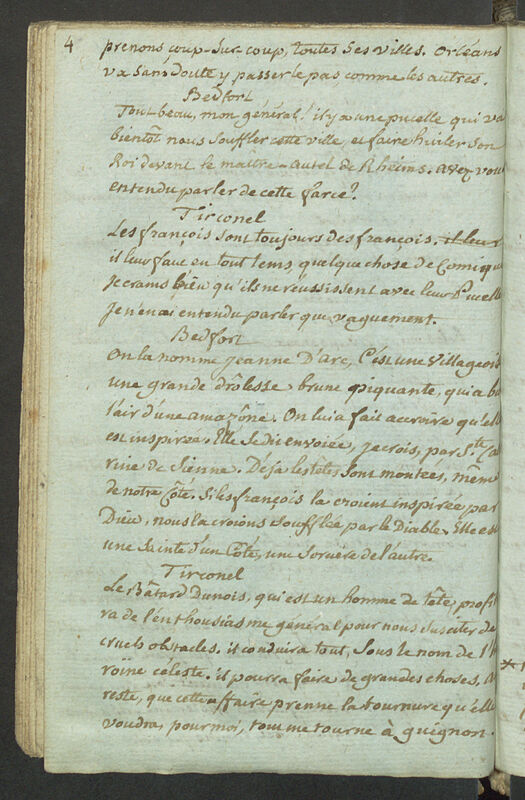 4
prenons coup-sur-coup, toutes ses villes. Orléans
va sans doute y passer le pas comme les autres.
Bedfort
Tout beau, mon général! il y a une pucelle qui va
bientôt nous souffler cette ville, et faire huiler son
Roi devant le maitre-autel de Rheims. avez-vous
entendu parler de cette farce?
Tirconel
Les françois sont toujours des françois, il leur
il leur faut en tout tems, quelque chose de Comique
Je crains bien qu'ils ne reussissent avec leur Pucelle
Je n'en ai entendu parler que vaguement.
Bedfort
On la nomme Jeanne D'arc, C'est une Villageoise
une grande drôlesse brune piquante, qui a b
l'air d'une amazône. On lui a fait accroire qu'elle
est inspirée. Elle se dit envoiée, je crois, par Ste Ca
rine de Sienne. Déja les têtes sont montées, même
de notre Côté. Si les françois la croient inspirée par
Dieu, nous la croions soufflée par le Diable. Elle est
une Sainte d'un Côté, une Sorciere de l'autre.
Tirconel
Le Bâtard Dunois, qui est un homme de tête, profi
ra de l'enthousiasme général pour nous susciter de
cruels obstacles. il conduira tout, Sous le nom de l'h
roïne céleste. il pourra faire de grandes choses, A
reste, que cette affaire prenne la tournure qu'elle
voudra, pour moi, tout me tourne à guignon.